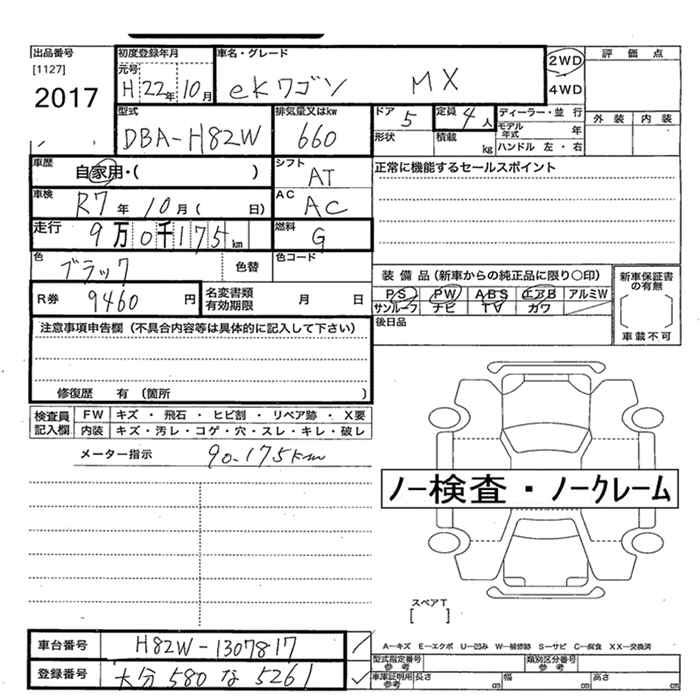 出品番号 初度登録年月 車名・グレード 2WD 評価点
[1127] 元号
2017 H 22年 10月 eKワゴン MX 4WD
型式 排気量又はkw ドア 5 定員 4人 ディーラー・並行 外装 内装
DBA-H82W 660 形状 積載 kg モデル年式 年
ハンドル 左・右
車歴 自家用・( ) シフト AT 正常に機能するセールスポイント
車検 R7年 10月( 日) AC AC
走行 9万0千175km 燃料 G
色 ブラック 色替 色コード
装備品(新車からの純正品に限り○印) 新車保証書の有無
R券 9460円 名変書類有効期限 月 日 PS PW ABS エアB アルミW
サンルーフ ナビ TV カワ
注意事項申告欄(不具合内容等は具体的に記入して下さい) 後日品 車載不可
修復歴 有(箇所 )
検査員記入欄 FW キズ・飛石・ヒビ割・リペア跡・X要
内装 キズ・汚レ・コゲ・穴・スレ・キレ・破レ
メーター指示 90-175km
ノー検査・ノークレーム
スペアT
[ ]
車台番号 H82W-1307817
A-キズ E-エクボ U-凹み W-補修跡 S-サビ C-腐食 XX-交換済
型式指定番号参考 類別区分番号参考
登録番号 大分 580 な 5261 車庫証明用参考 長さ cm 幅 cm 高さ cm